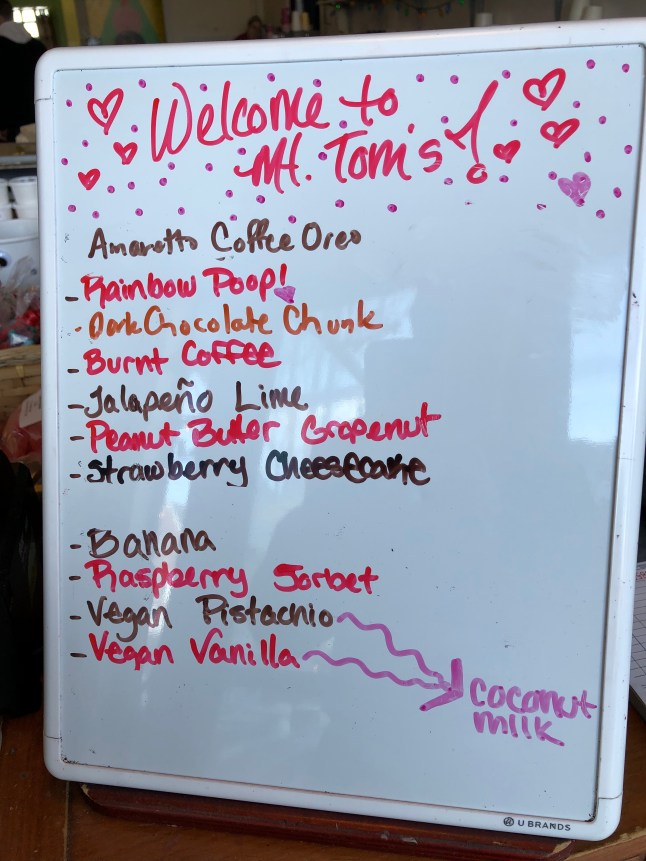 Welcome to
Mt. Tom's!
Amaretto Coffee Oreo
- Rainbow Poop!
- Dark Chocolate Chunk
- Burnt Coffee
- Jalapeño Lime
- Peanut Butter Grapenut
- Strawberry Cheesecake
- Banana
- Raspberry Sorbet
- Vegan Pistachio
- Vegan Vanilla
coconut
milk
U BRANDS